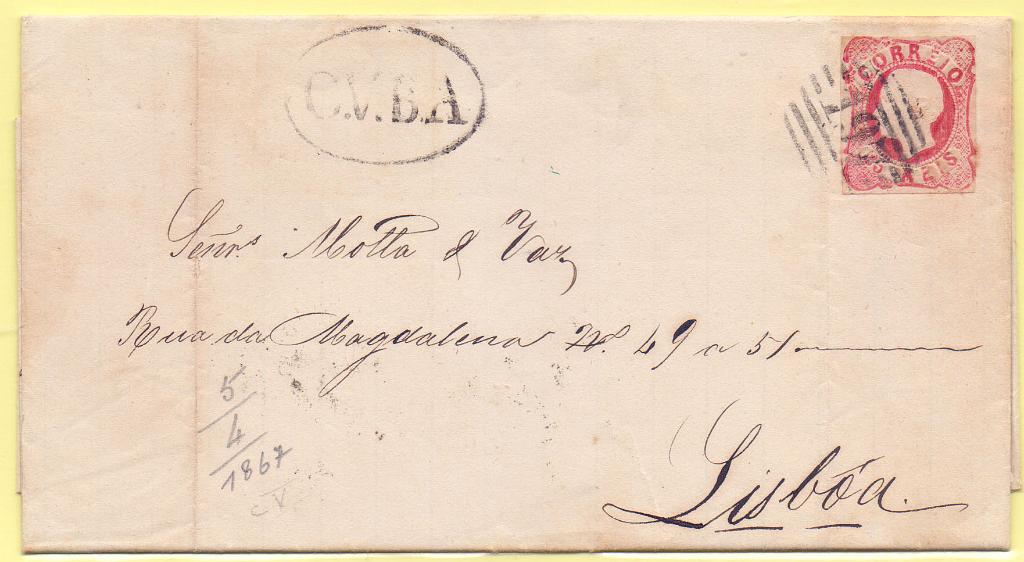 C.V.B.A
CORREIO
REIS
Senrs Motta & Vaz
Rua da Magdalena No. 49 a 51
5
4
1867
CV
Lisbôa.